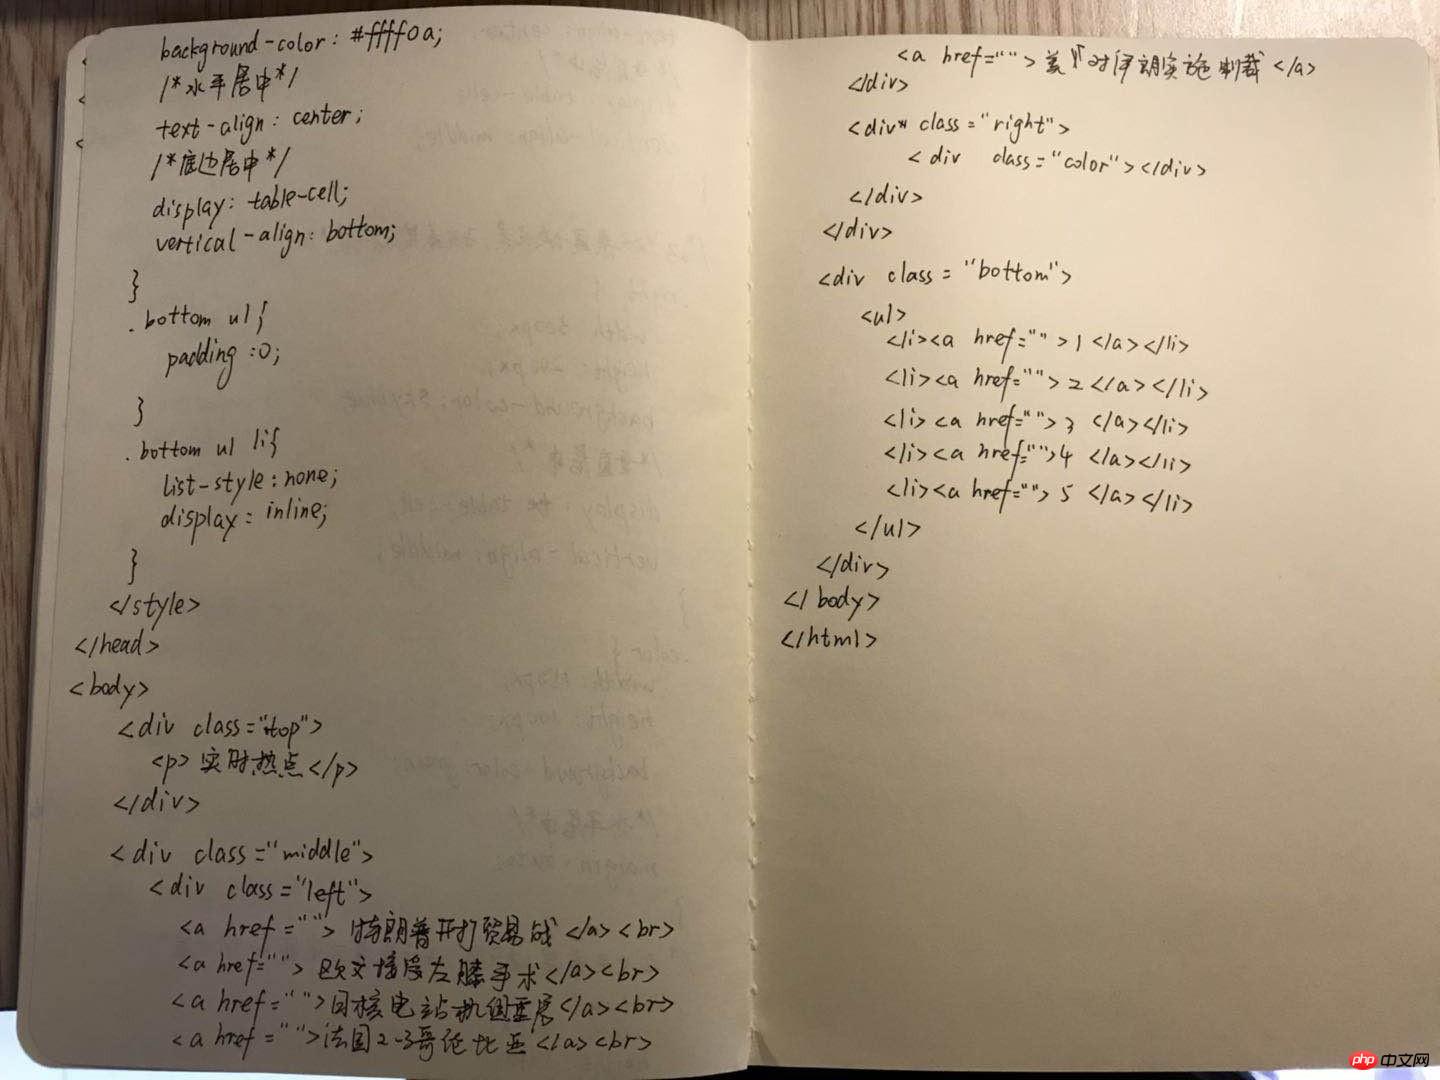 background-color: #ffff0a;
/*水平居中*/
text-align: center;
/*底边居中*/
display: table-cell;
vertical-align: bottom;
}
.bottom ul{
padding:0;
}
.bottom ul li{
list-style:none;
display: inline;
}
</style>
</head>
<body>
<div class="top">
<p>实时热点</p>
</div>
<div class="middle">
<div class="left">
<a href="">特朗普开打贸易战</a><br>
<a href="">欧文接受左膝手术</a><br>
<a href="">日核电站机组重启</a><br>
<a href="">法国2-3哥伦比亚</a><br>
<a href="">美对伊朗实施制裁</a>
</div>
<div class="right">
<div class="color"></div>
</div>
</div>
<div class="bottom">
<ul>
<li><a href="">1</a></li>
<li><a href="">2</a></li>
<li><a href="">3</a></li>
<li><a href="">4</a></li>
<li><a href="">5</a></li>
</ul>
</div>
</body>
</html>
php中文网